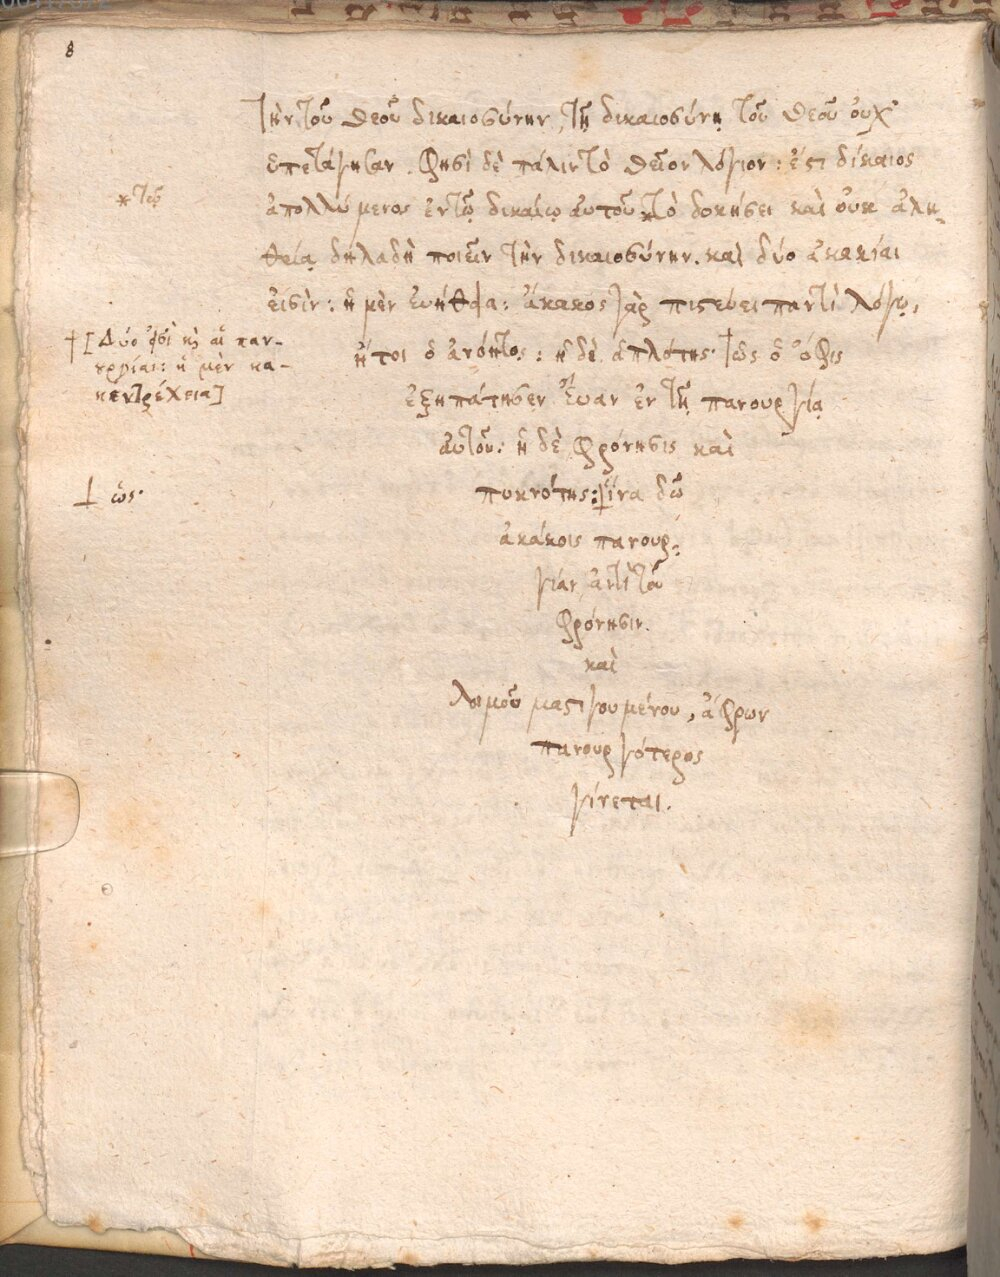 8
τὴν τοῦ θεοῦ δικαιοσύνην, τῇ δικαιοσύνῃ τοῦ θεοῦ οὐχ
ὑπετάγησαν. φησὶ δὲ πάλιν τὸ θεῖον λόγιον: ἐστὶ δίκαιος
* τῷ
ἀπολλύμενος ἐν τῷ δικαίῳ αὐτοῦ * τὸ δοκήσει καὶ οὐκ ἀλη-
θείᾳ δηλαδὴ ποιεῖν τὴν δικαιοσύνην. καὶ δύο ἀκακίαι
εἰσὶν: ἡ μὲν εὐήθεια: ἄκακος γὰρ πιστεύει παντὶ λόγῳ,
† [Δύο φησὶ καὶ αἱ παν-
ουργίαι: ἡ μὲν κα-
κεντρέχεια]
ἤτοι ὁ ἀνόητος: ἡ δὲ ἁπλότης. † ὡς ὁ ὄφις
ἐξηπάτησεν Εὔαν ἐν τῇ πανουργίᾳ
αὐτοῦ: ἡ δὲ φρόνησις καὶ
⊥ ὡς.
πυκνότης: ⊥ ἵνα δῶ
ἀκάκοις πανουρ-
γίαν, ἀντὶ τοῦ
φρόνησιν.
καὶ
λοιμοῦ μαστιγουμένου, ἄφρων
πανουργότερος
γίνεται.